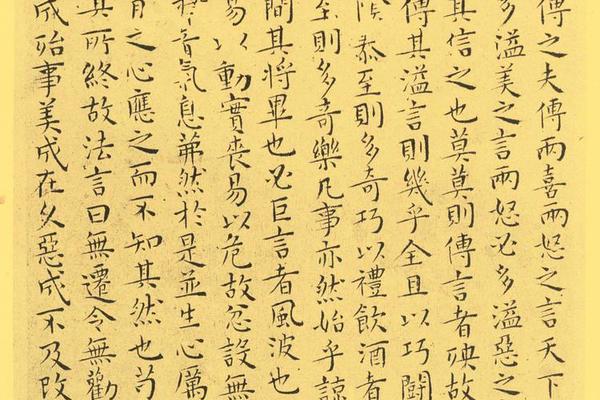 傳之夫傳兩喜兩怒之言天下
多溢美之言兩怒必多溢惡之
其信之也莫莫則傳言者殃故
傳其溢言則幾乎全且以巧鬪
陰泰至則多奇巧以禮飲酒者
至則多奇樂凡事亦然始乎諒
簡其將畢也必巨言者風波也
易以動實喪易以危故忿設無
音氣息茀然於是並生心厲
肖之心應之而不知其然也苟
其所終故法言曰無遷令無勸
成殆事美成在久惡成不及改